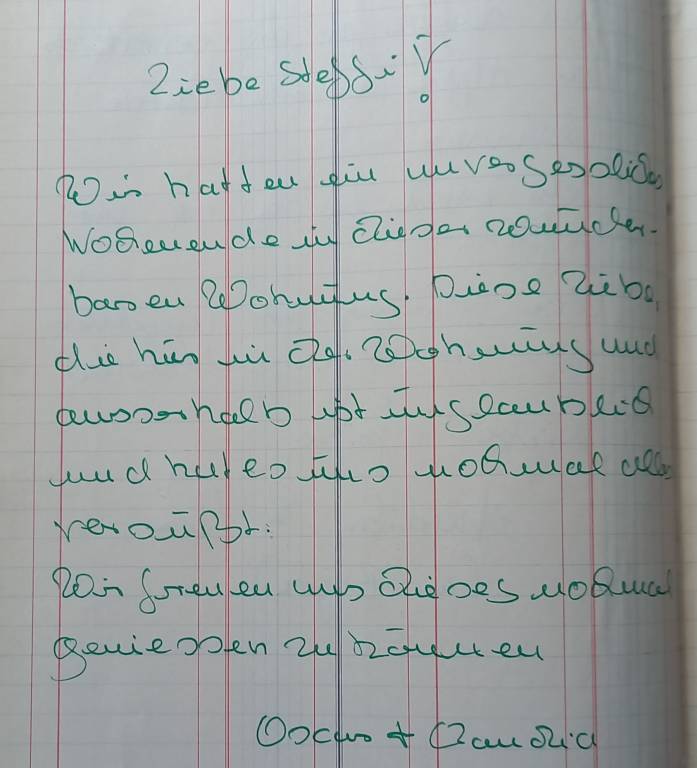 Liebe Steffi!
Wir hatten ein unvergessliches
Wochenende in dieser wunder-
baren Wohnung. Diese Liebe,
die hier in der Wohnung und
ausserhalb ist unglaublich
und hat es uns nochmal alles
versüßt.
Wir freuen uns dieses nochmal
geniessen zu können
Oscar + Claudia